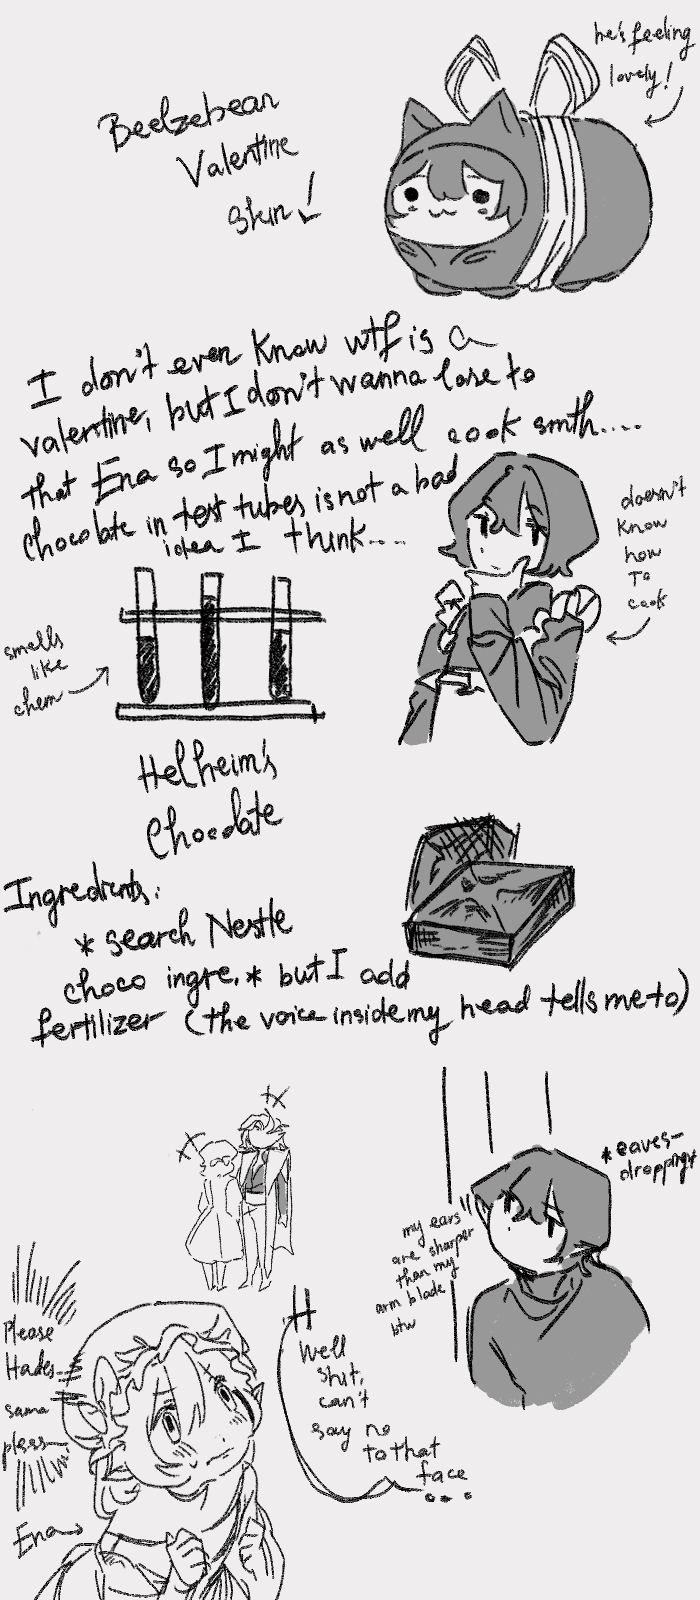 Beelzebean
Valentine
Skin!
he's feeling
lovely!
I don't even know wtf is a
valentine, but I don't wanna lose to
that Ena so I might as well cook smth....
Chocolate in test tubes is not a bad
idea I think....
doesn't
know
how
To
cook
smells
like
chem
Helheim's
Chocolate
Ingredients:
* search Nestle
choco ingre. * but I add
fertilizer (the voice inside my head tells me to)
*eaves-
dropping*
my ears
are sharper
than my
arm blade
btw
Please
Hades
sama
pless
Ena
H
Well
shit,
can't
say no
to that
face
...